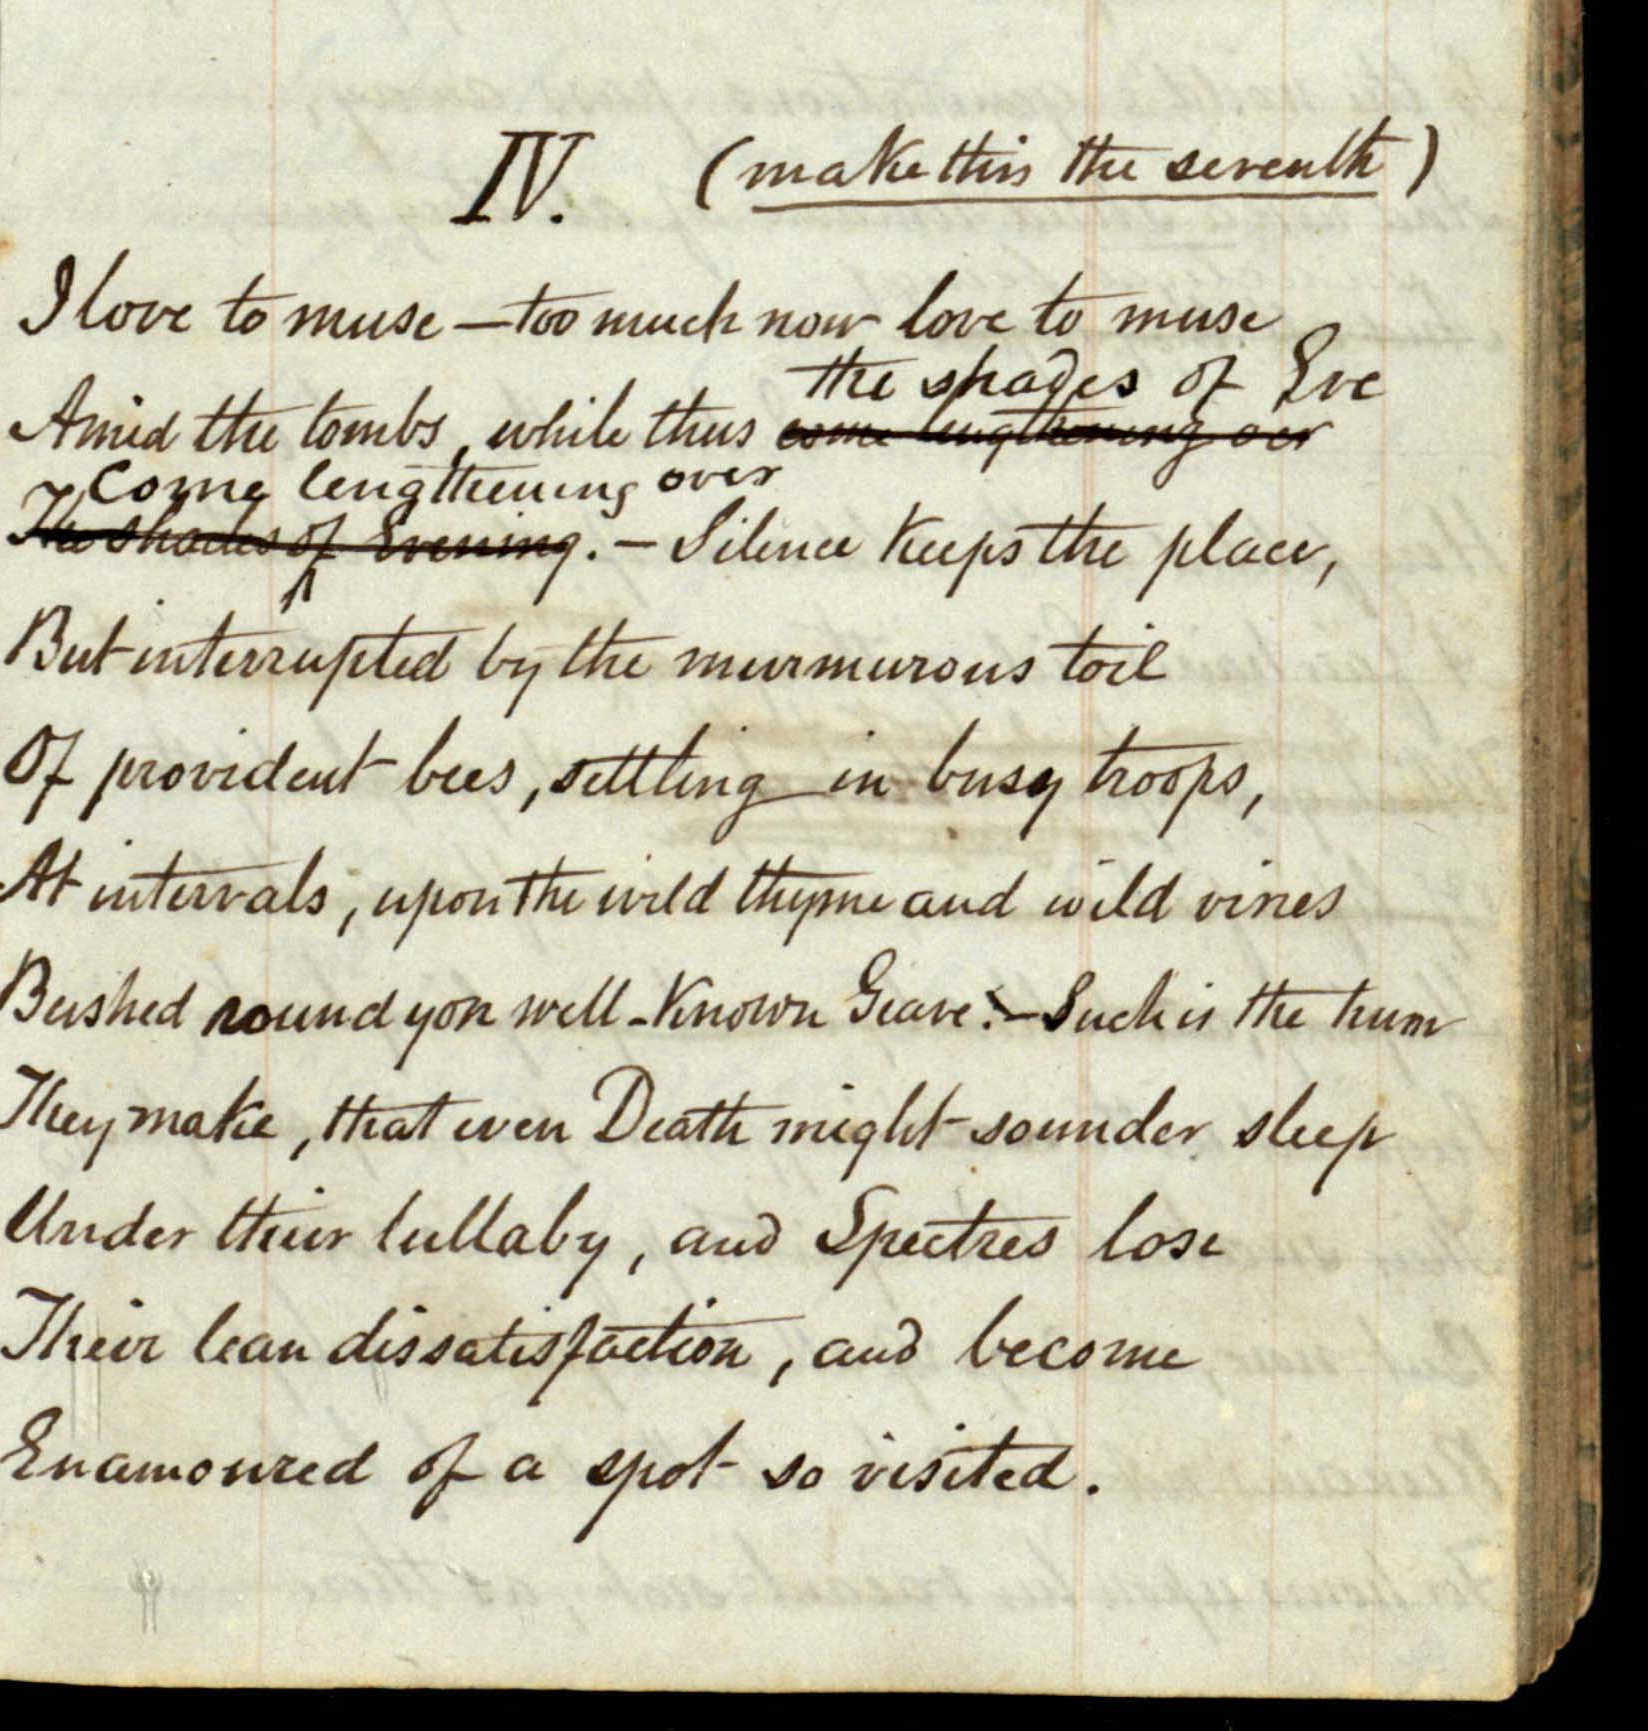 IV. (make this the seventh)
I love to muse — too much now love to muse
the shades of Eve
Amid the tombs, while thus come lengthening oer
Come lengthening over
The shades of Evening. — Silence keeps the place,
But interrupted by the murmurous toil
Of provident bees, settling in busy troops,
At intervals, upon the wild thyme and wild vines
Bushed round yon well-known Grave: — Such is the hum
They make, that even Death might sounder sleep
Under their lullaby, and Spectres lose
Their lean dissatisfaction, and become
Enamoured of a spot so visited.